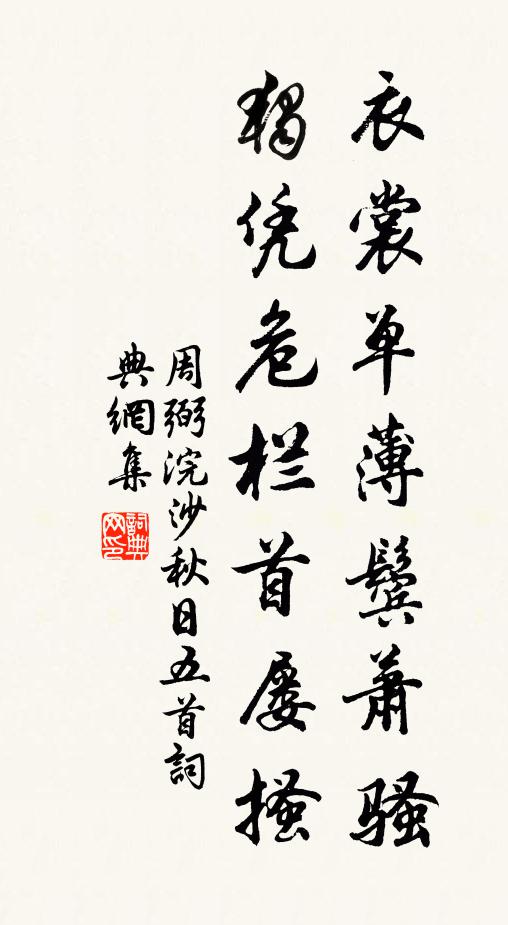 衣裳单薄鬓萧骚
独凭危栏首屡搔
周弼浣沙秋日五首詞
典網集
詞典
网印